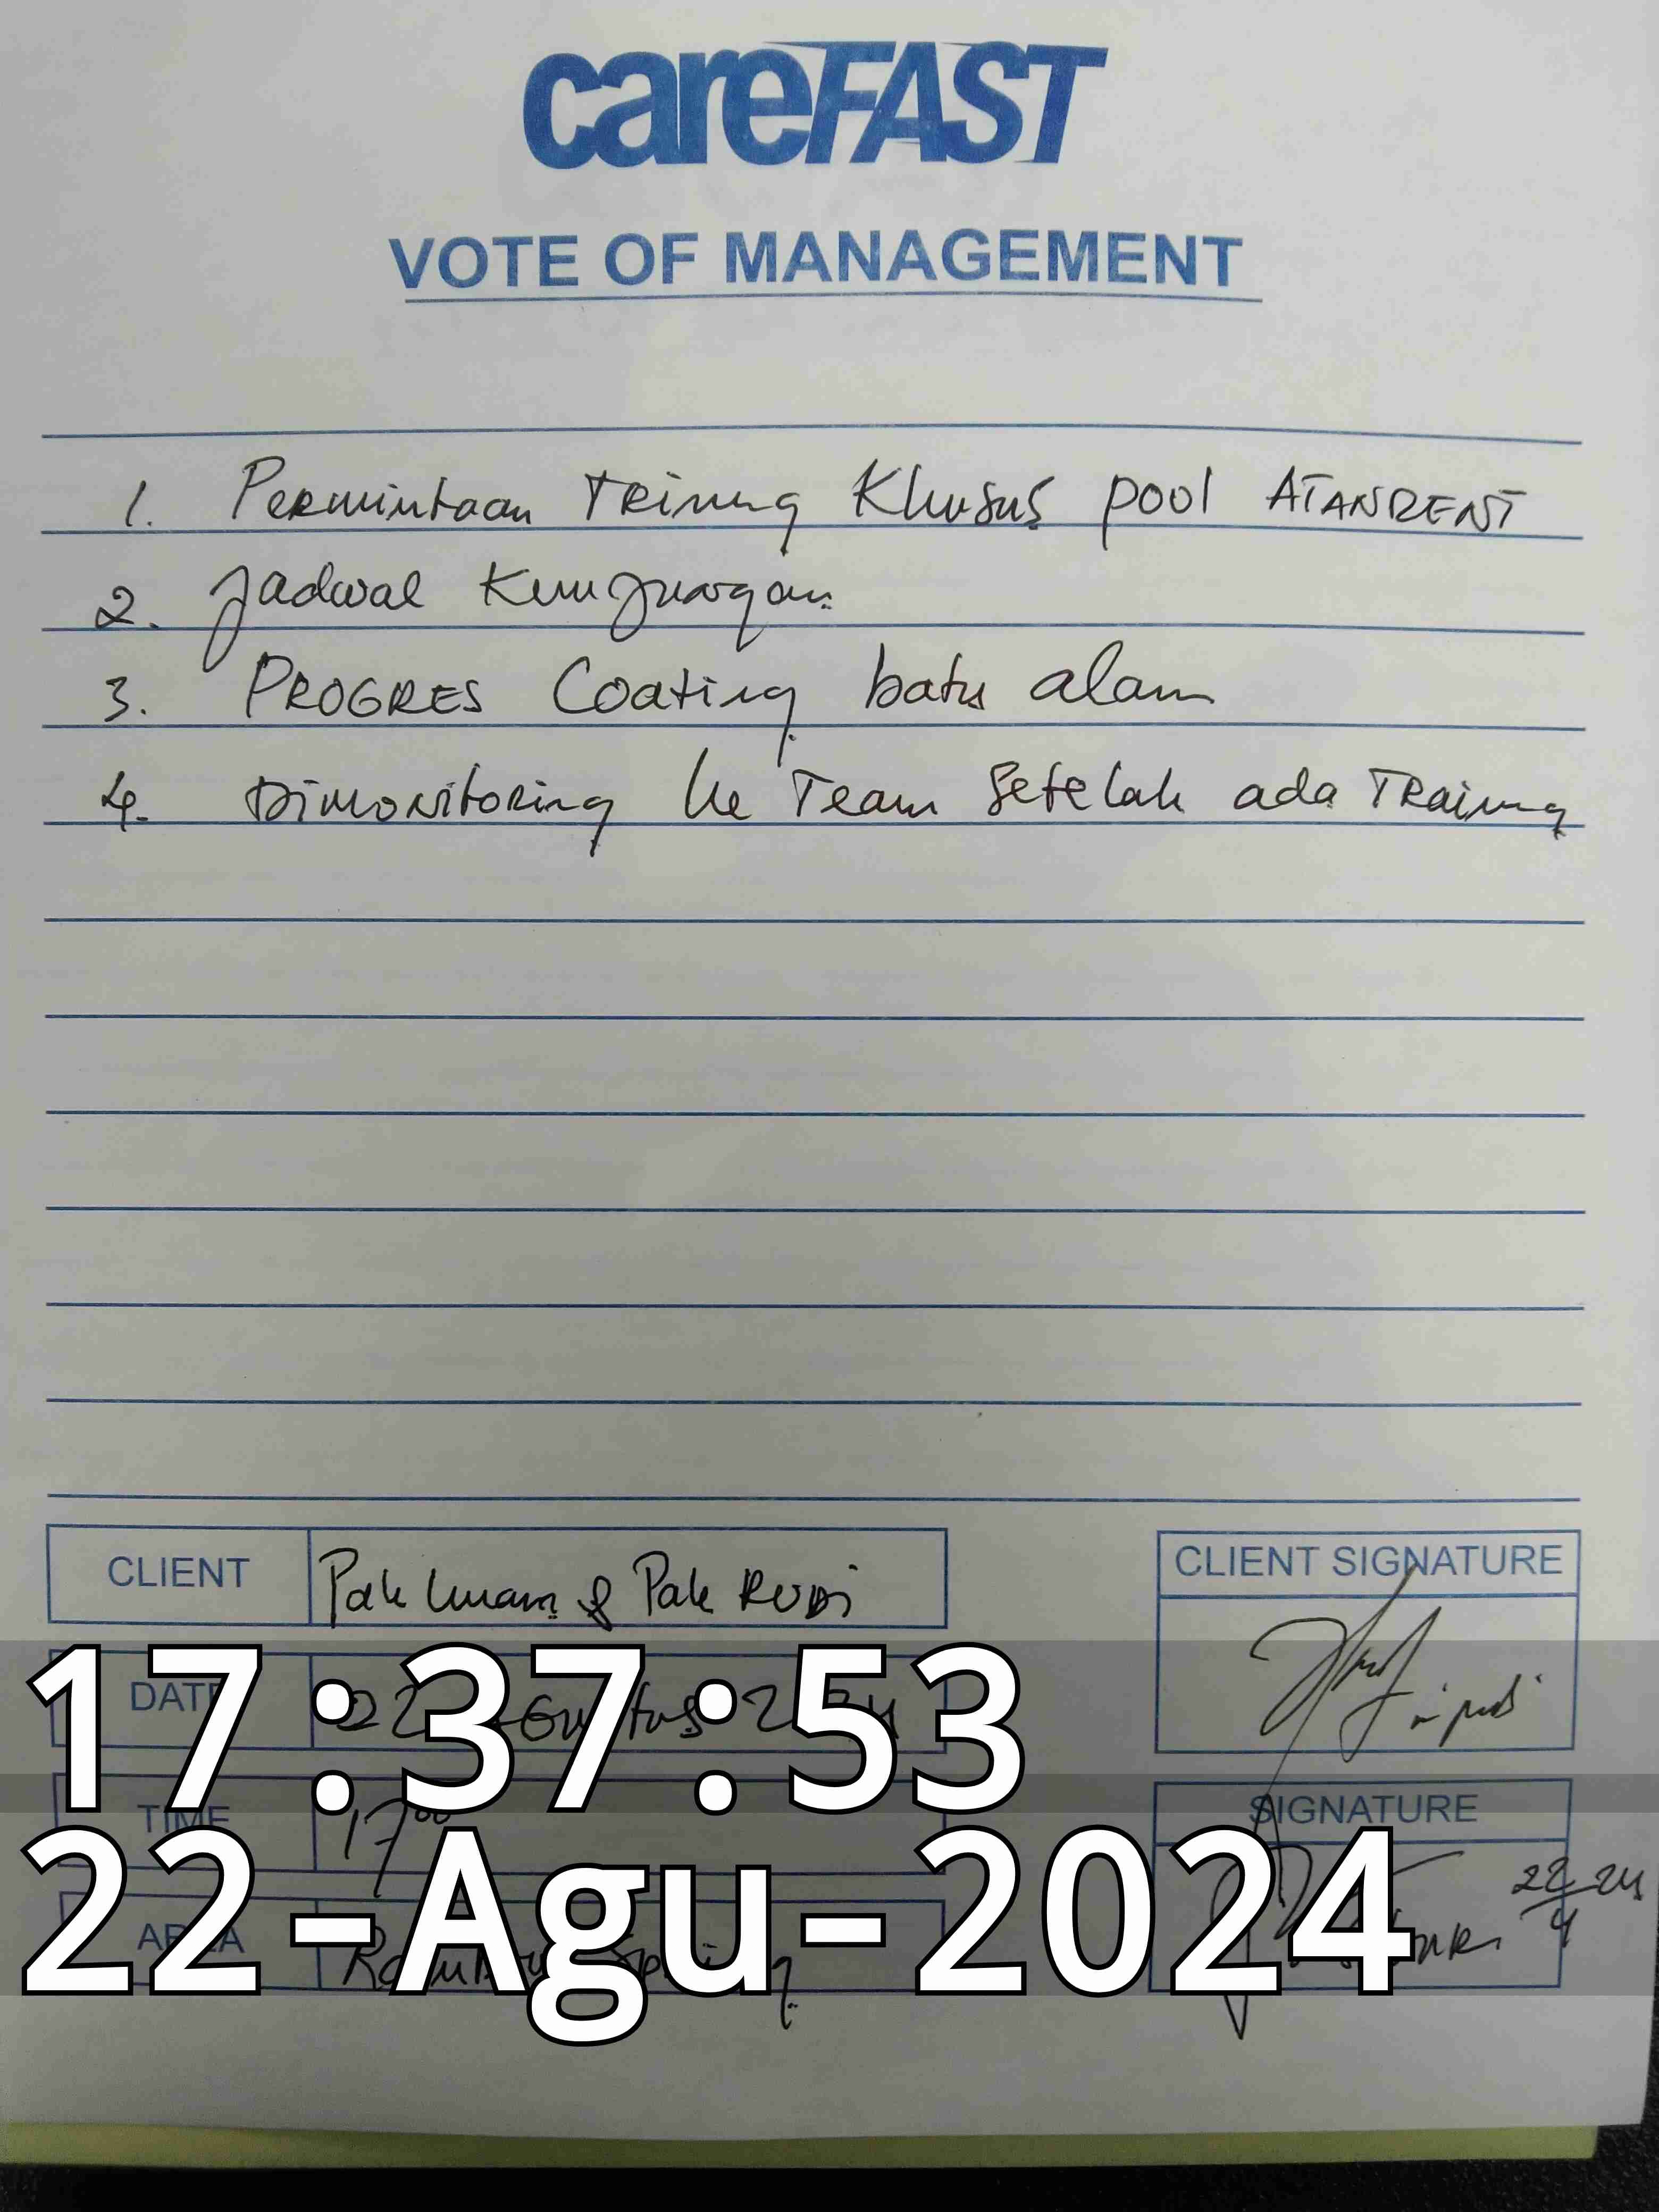 careFAST
VOTE OF MANAGEMENT
1. Permintaan Trining Khusus pool ATANDENT
2. Jadwal Kunjungan
3. PROGRES Coating batu alam
4. Dimonitoring ke Team Setelah ada Training
CLIENT Pak Imam & Pak RUDi
CLIENT SIGNATURE
DATE 22 Agustus 2024
TIME 17.00
SIGNATURE
AREA
22-24
17:37:53
22-Agu-2024